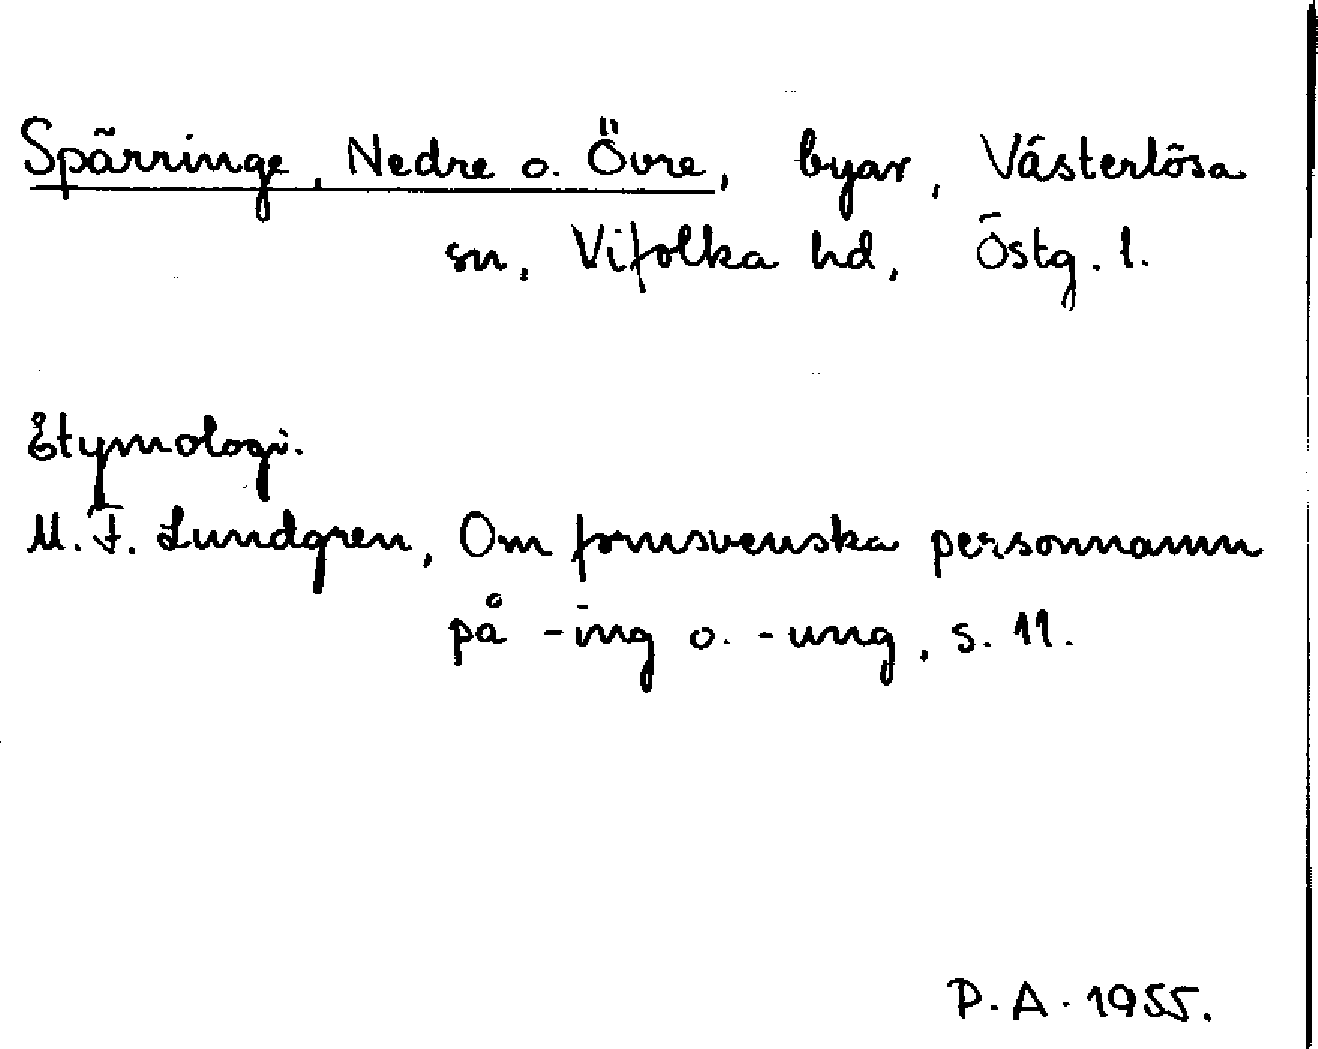 Spärringe, Nedre o. Övre, byar, Västerlösa
sn, Vifolka hd, Östg. l.
Etymologi.
M. F. Lundgren, Om fornsvenska personnamn
på -ing o. -ung, s. 11.
P. A. 1955.